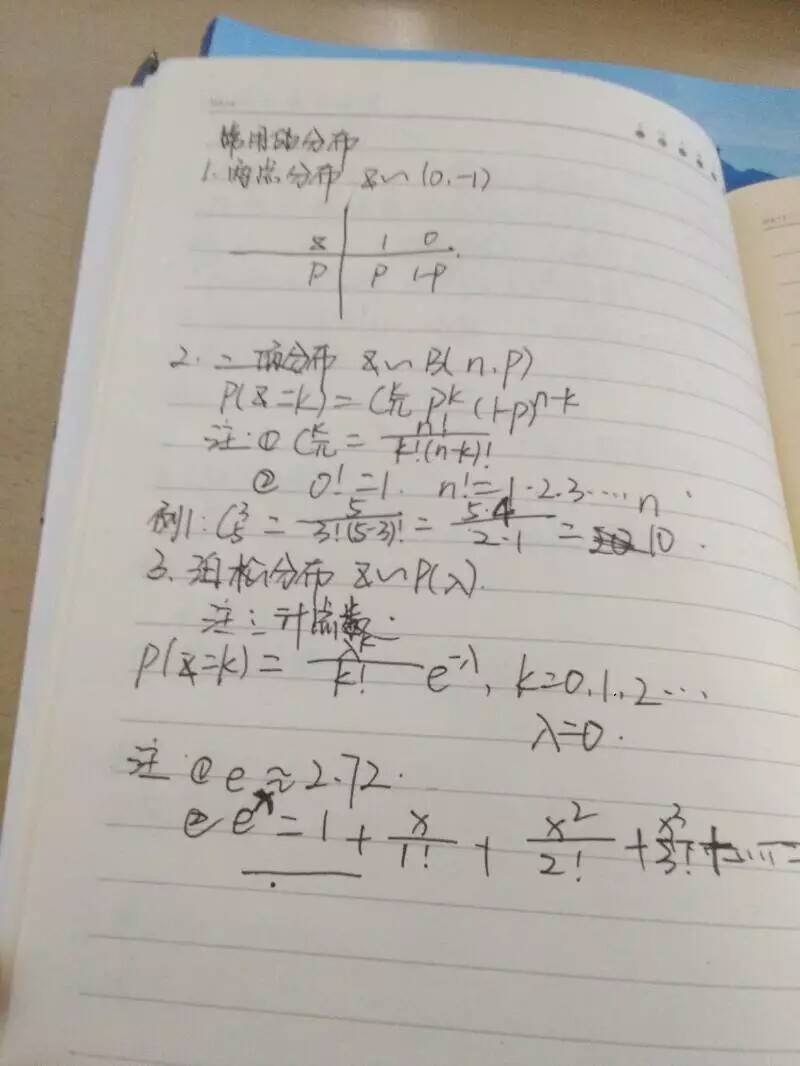 常用的分布
1.两点分布 X~(0,-1)
X | 1 0.
P | P 1-P
2.二项分布 X~B(n.p)
P(X=k)=C_n^k P^k (1-p)^{n-k}
注:① C_n^k = n!/k!(n-k)!
② 0!=1. n!=1·2·3·····n
例1:C_5^3 = 5/3!(5-3)! = 5·4/2·1 = 10.
3.泊松分布 X~P(λ).
注:计点数
P(X=k)= λ^k/k! e^{-λ}, k=0,1,2···
λ=0.
注:① e≈2.72.
② e^x = 1 + x/1! + x^2/2! + x^3/3! + ······ =